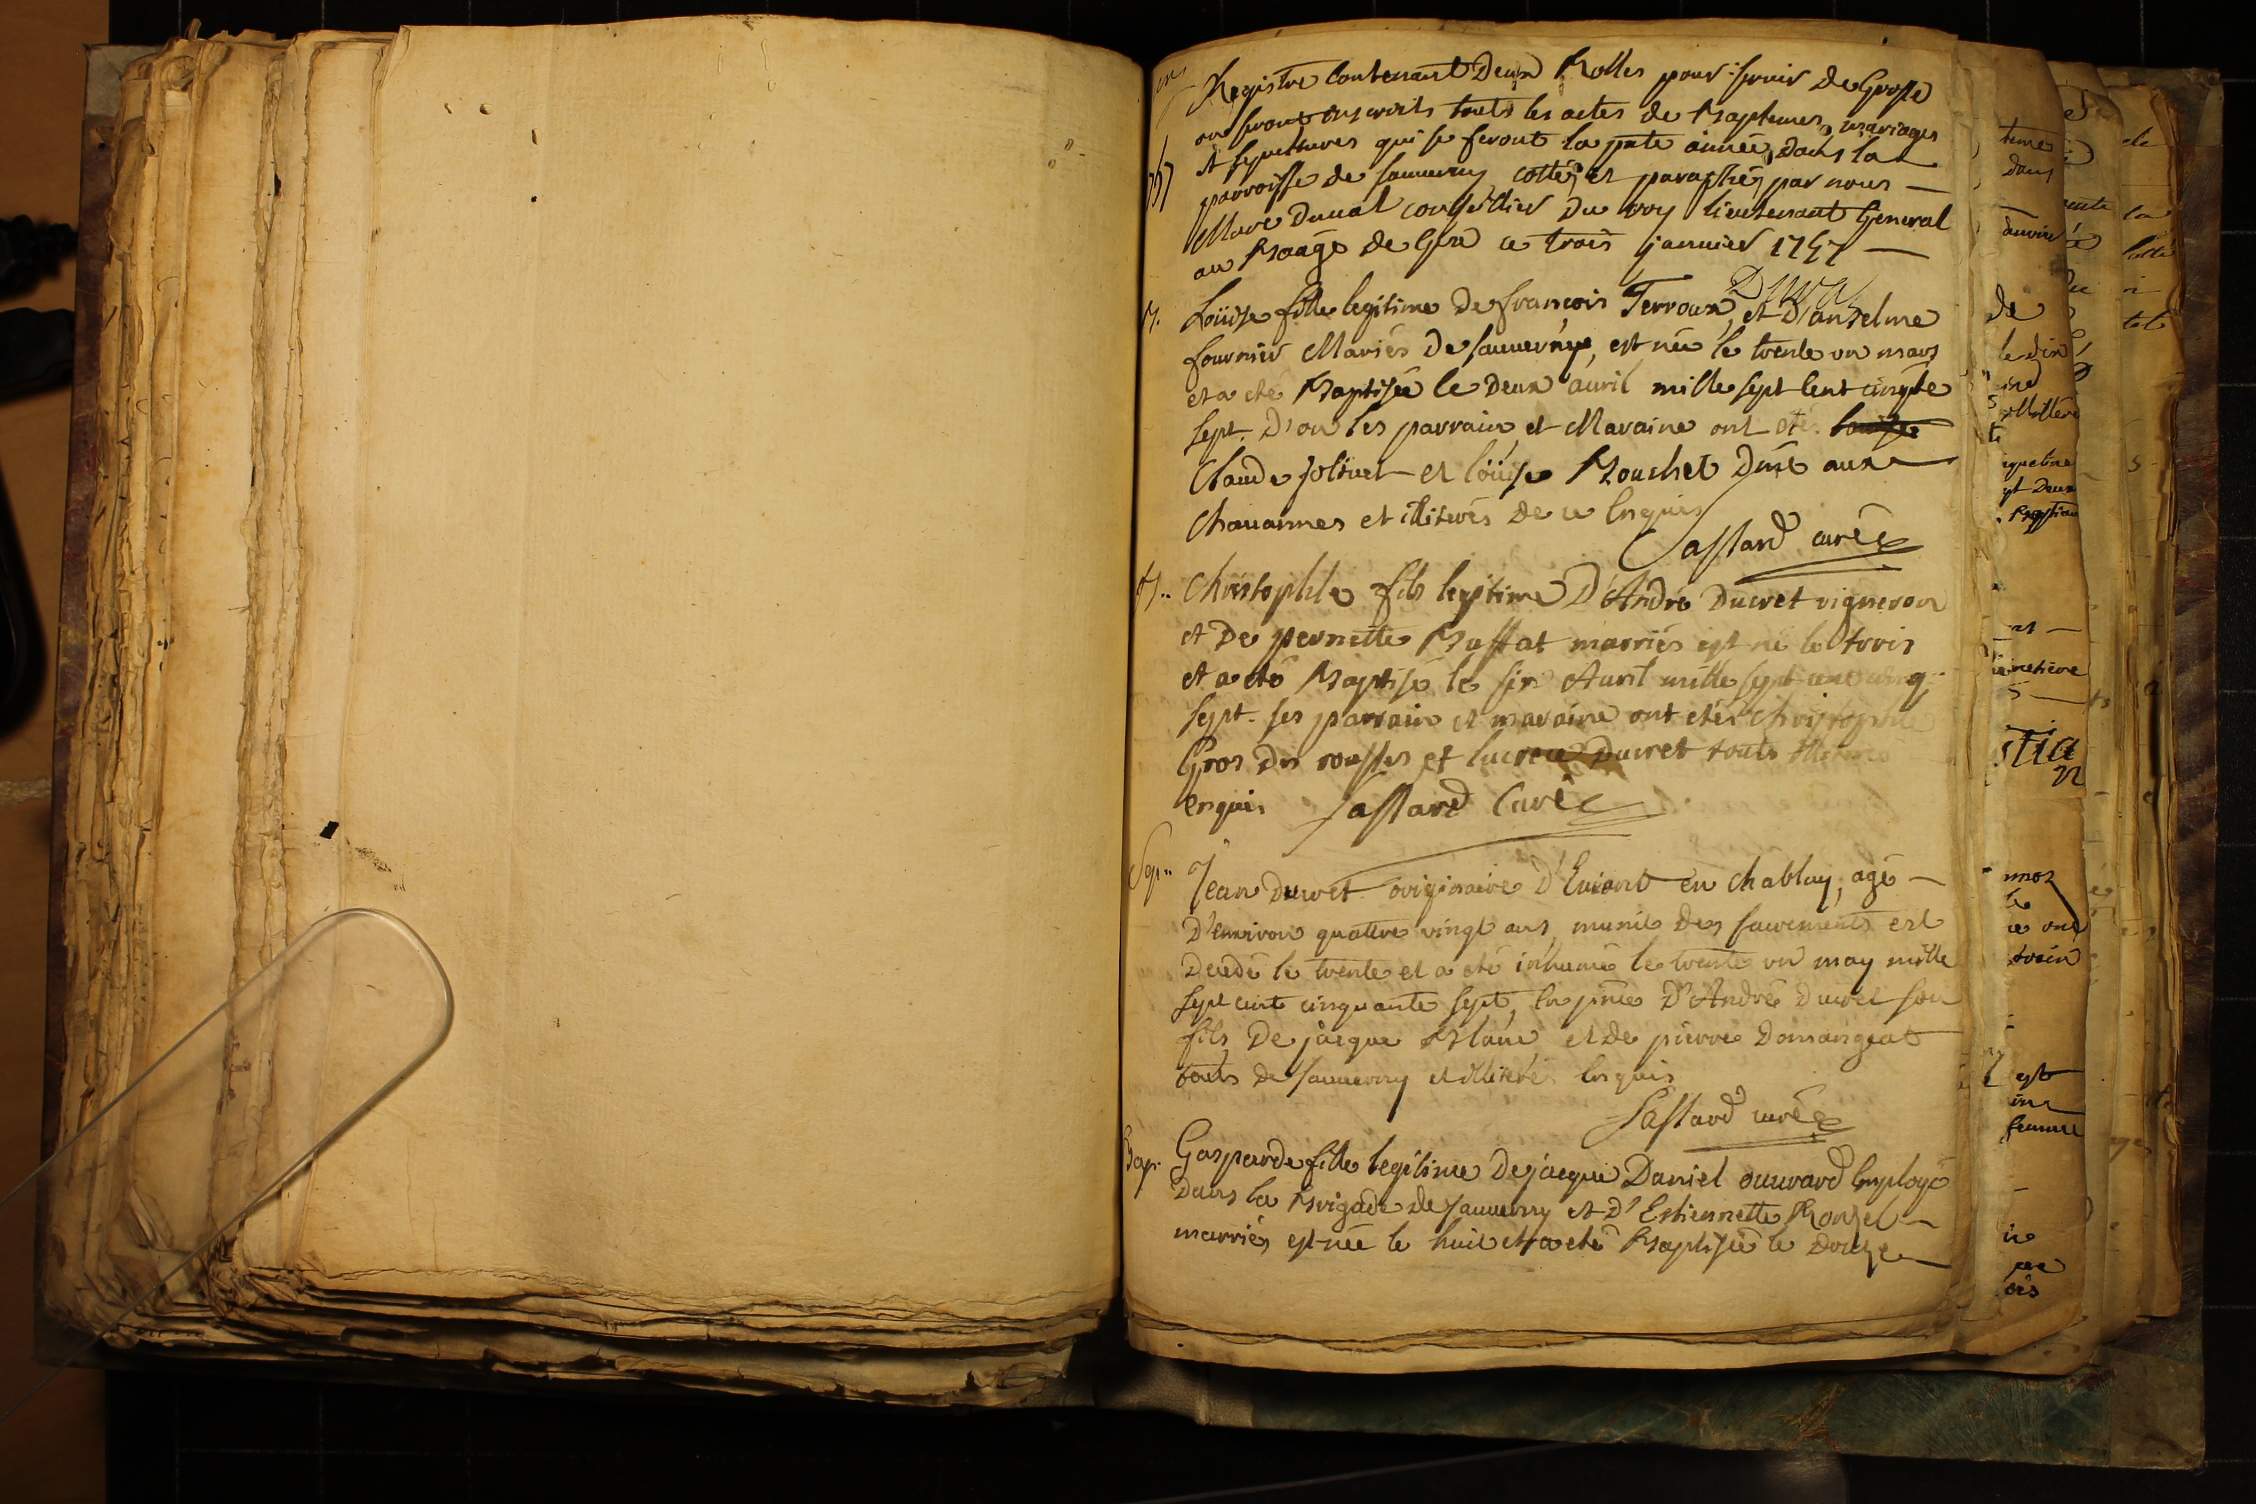 Registre contenant deux Rolles pour servir de Grosse
ou seront inscrits touts les actes de Baptemes, mariages
et sepultures qui se feront la pnte année, dans la
1757
parroisse de sauverny cottés et paraphés par nous
Marc Duval conseillier du roy lieutenant General
au Baage de Gex ce trois janvier 1757
Duval
B. Loüise fille legitime de françois Terroux, et d'anselme
fournier Mariés de sauverny, est née le trente un mars
et a eté Baptisée le deux avril mille sept cent cinqte
sept. D'ou les parrain et Maraine ont etés
Claude Jolivet et loüise Bouchet dont aux
Chavannes et illiterés de ce Enquis
Castard curé
B.. Christophle fils legitime D'André Ducret vigneron
et De pernette Baffat marriés est né le trois
et a eté Baptisé le six Avril mille sept cent cinq:
sept. ses parrain et maraine ont etés Christophle
Gros des rousses et lucrece Ducret touts
enquis Castard Curé
Sep.. Jean Ducret originaire D'Eviant en chablay, agé
D'environ quattre vingt ans, munit des sacrements est
decedé le trente et a eté inhumé le trente un may mille
sept cent cinquante sept, en pnce D'André Ducret son
fils De jacque Blanc et de pierre Domangeat
touts de sauverny et illiterés Enquis
Castard curé
Bap. Gasparde fille legitime De jacque Daniel ouuvard Employé
Dans la Brigade de sauverny et D'Estiennette Rouzet
marriés est née le huit et a eté Baptisée le douze